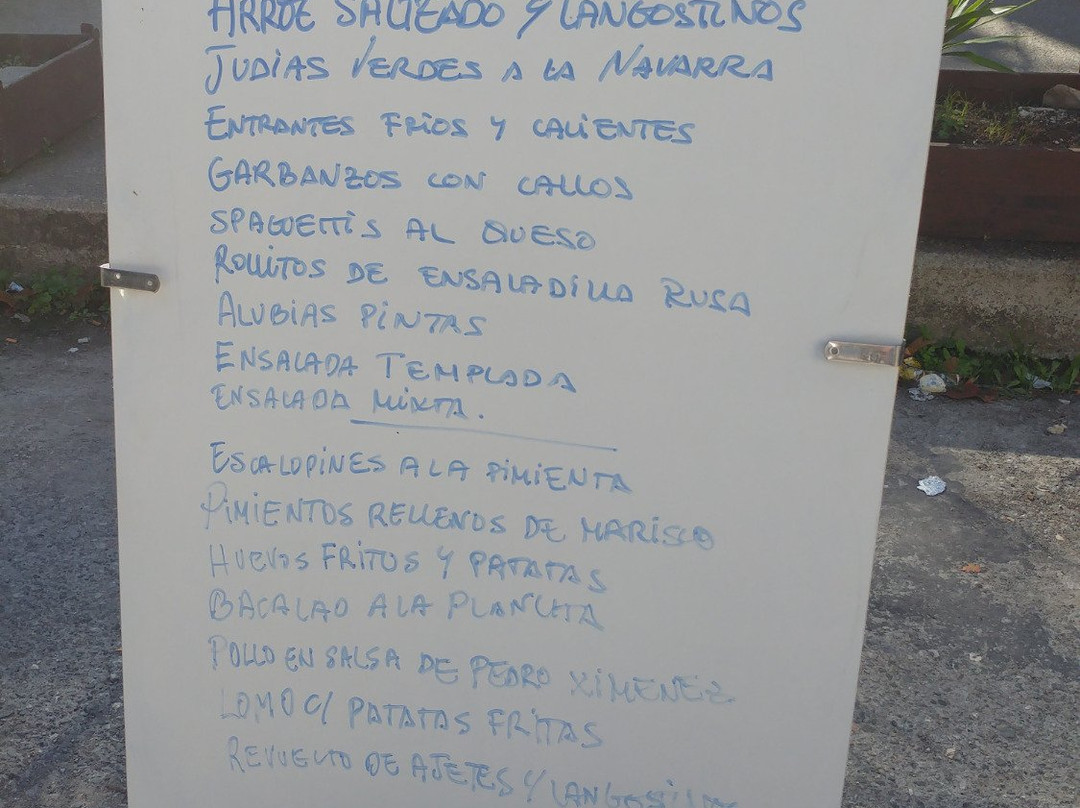 ARROZ SALTEADO Y LANGOSTINOS
JUDIAS VERDES A LA NAVARRA
ENTRANTES FRIOS Y CALIENTES
GARBANZOS CON CALLOS
SPAGUETTIS AL QUESO
ROLLITOS DE ENSALADILLA RUSA
ALUBIAS PINTAS
ENSALADA TEMPLADA
ENSALADA MIXTA.
ESCALOPINES A LA PIMIENTA
PIMIENTOS RELLENOS DE MARISCO
HUEVOS FRITOS Y PATATAS
BACALAO A LA PLANCHA
POLLO EN SALSA DE PEDRO XIMENEZ
LOMO C/ PATATAS FRITAS
REVUELTO DE AJETES Y LANGOSTINOS